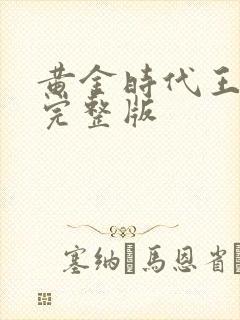 黃金時代王
完整版
塞纳·馬恩省